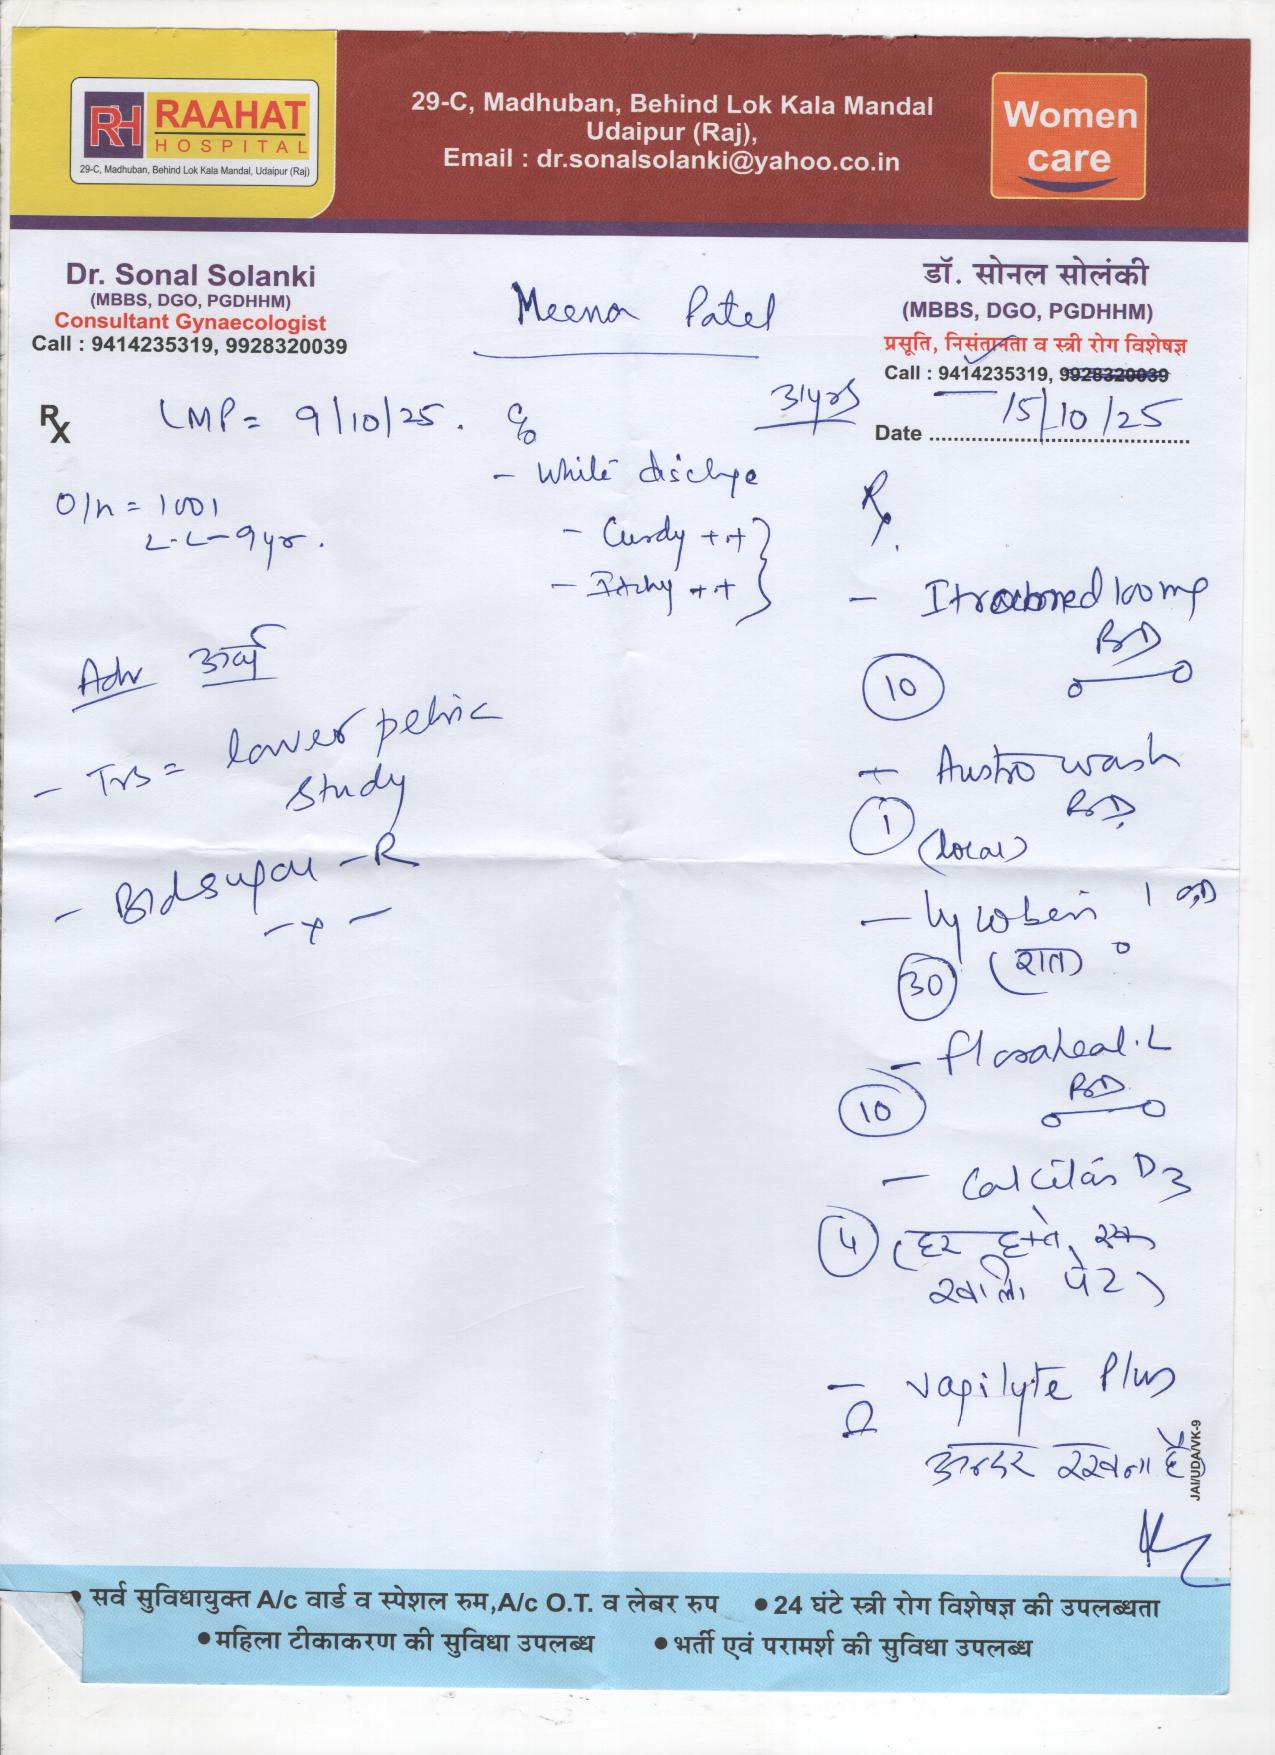 RH RAAHAT
HOSPITAL
29-C, Madhuban, Behind Lok Kala Mandal, Udaipur (Raj)
29-C, Madhuban, Behind Lok Kala Mandal
Udaipur (Raj),
Email : dr.sonalsolanki@yahoo.co.in
Women
care
Dr. Sonal Solanki
(MBBS, DGO, PGDHHM)
Consultant Gynaecologist
Call : 9414235319, 9928320039
Meena Patel
31yrs
डॉ. सोनल सोलंकी
(MBBS, DGO, PGDHHM)
प्रसूति, निसंतानता व स्त्री रोग विशेषज्ञ
Call : 9414235319, 9928320039
Date 15/10/25
Rx LMP = 9/10/25. c/o
- White dischge
- Curdy ++
- Itchy ++
O/h = 1001
L.L-9yr.
Adv
- TVS = lower pelvic
study
- Bld sugar - R
- x -
Rx.
- 100mg
BD
10
Austro wash
BD
1 (local)
- Lycobein 1 OD
30 (रात)
- Floraheal.L
BD
10
- Calcitas D3
4 (हर हफ्ते
खाली पेट)
- Vagilyte Plus
अन्दर रखना है
JAI/UDA/VK-9
• सर्व सुविधायुक्त A/c वार्ड व स्पेशल रुम,A/c O.T. व लेबर रुप • 24 घंटे स्त्री रोग विशेषज्ञ की उपलब्धता
• महिला टीकाकरण की सुविधा उपलब्ध • भर्ती एवं परामर्श की सुविधा उपलब्ध